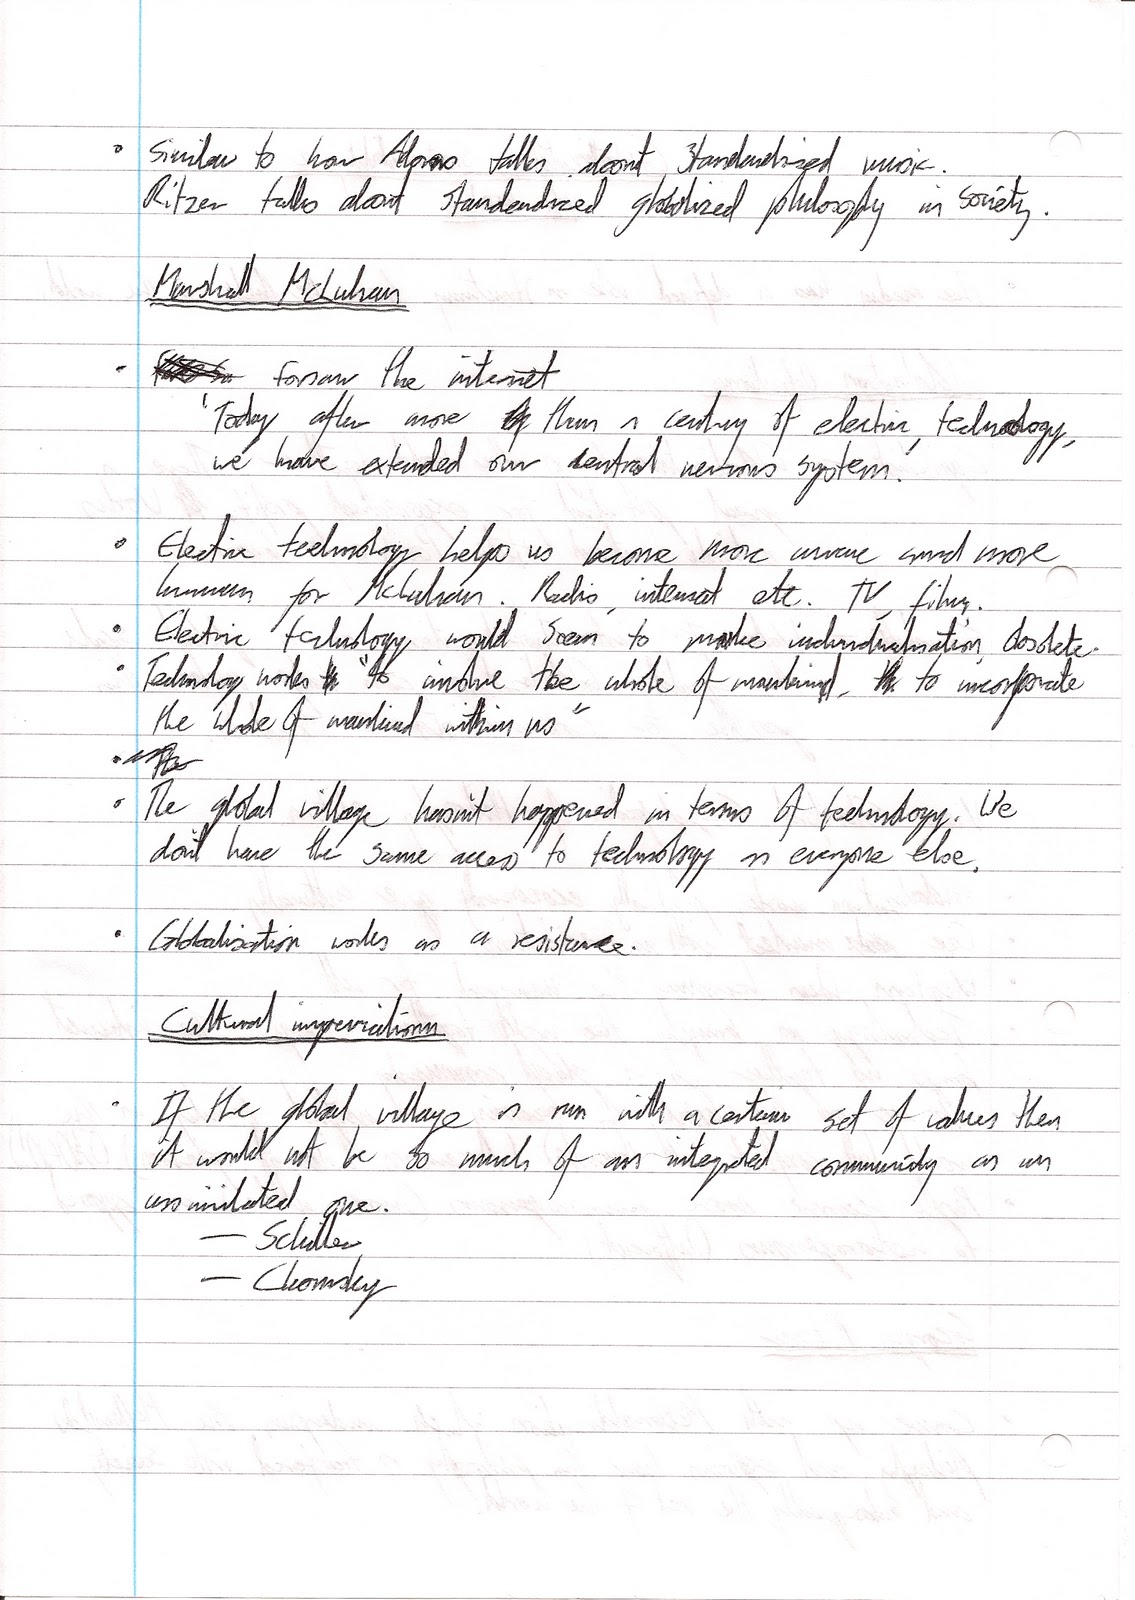 Similar to how Adorno talks about standardized music.
Ritzer talks about standardized globalized philosophy in society.
Marshall McLuhan
forsaw the internet
"Today after more than a century of electric, technology,
we have extended our central nervous system."
Electric technology helps us become more aware and more
human for McLuhan. Radio, internet etc. TV, films.
Electric technology would seem to make individualisation obsolete.
Technology works "to involve the whole of mankind, to incorporate
the whole of mankind within us"
The
The global village hasn't happened in terms of technology. We
don't have the same access to technology as everyone else.
Globalisation works as a resistance.
Cultural
If the global village is run with a certain set of values then
it would not be so much of an integrated community as an
assimilated one.
— Schiller
— Chomsky